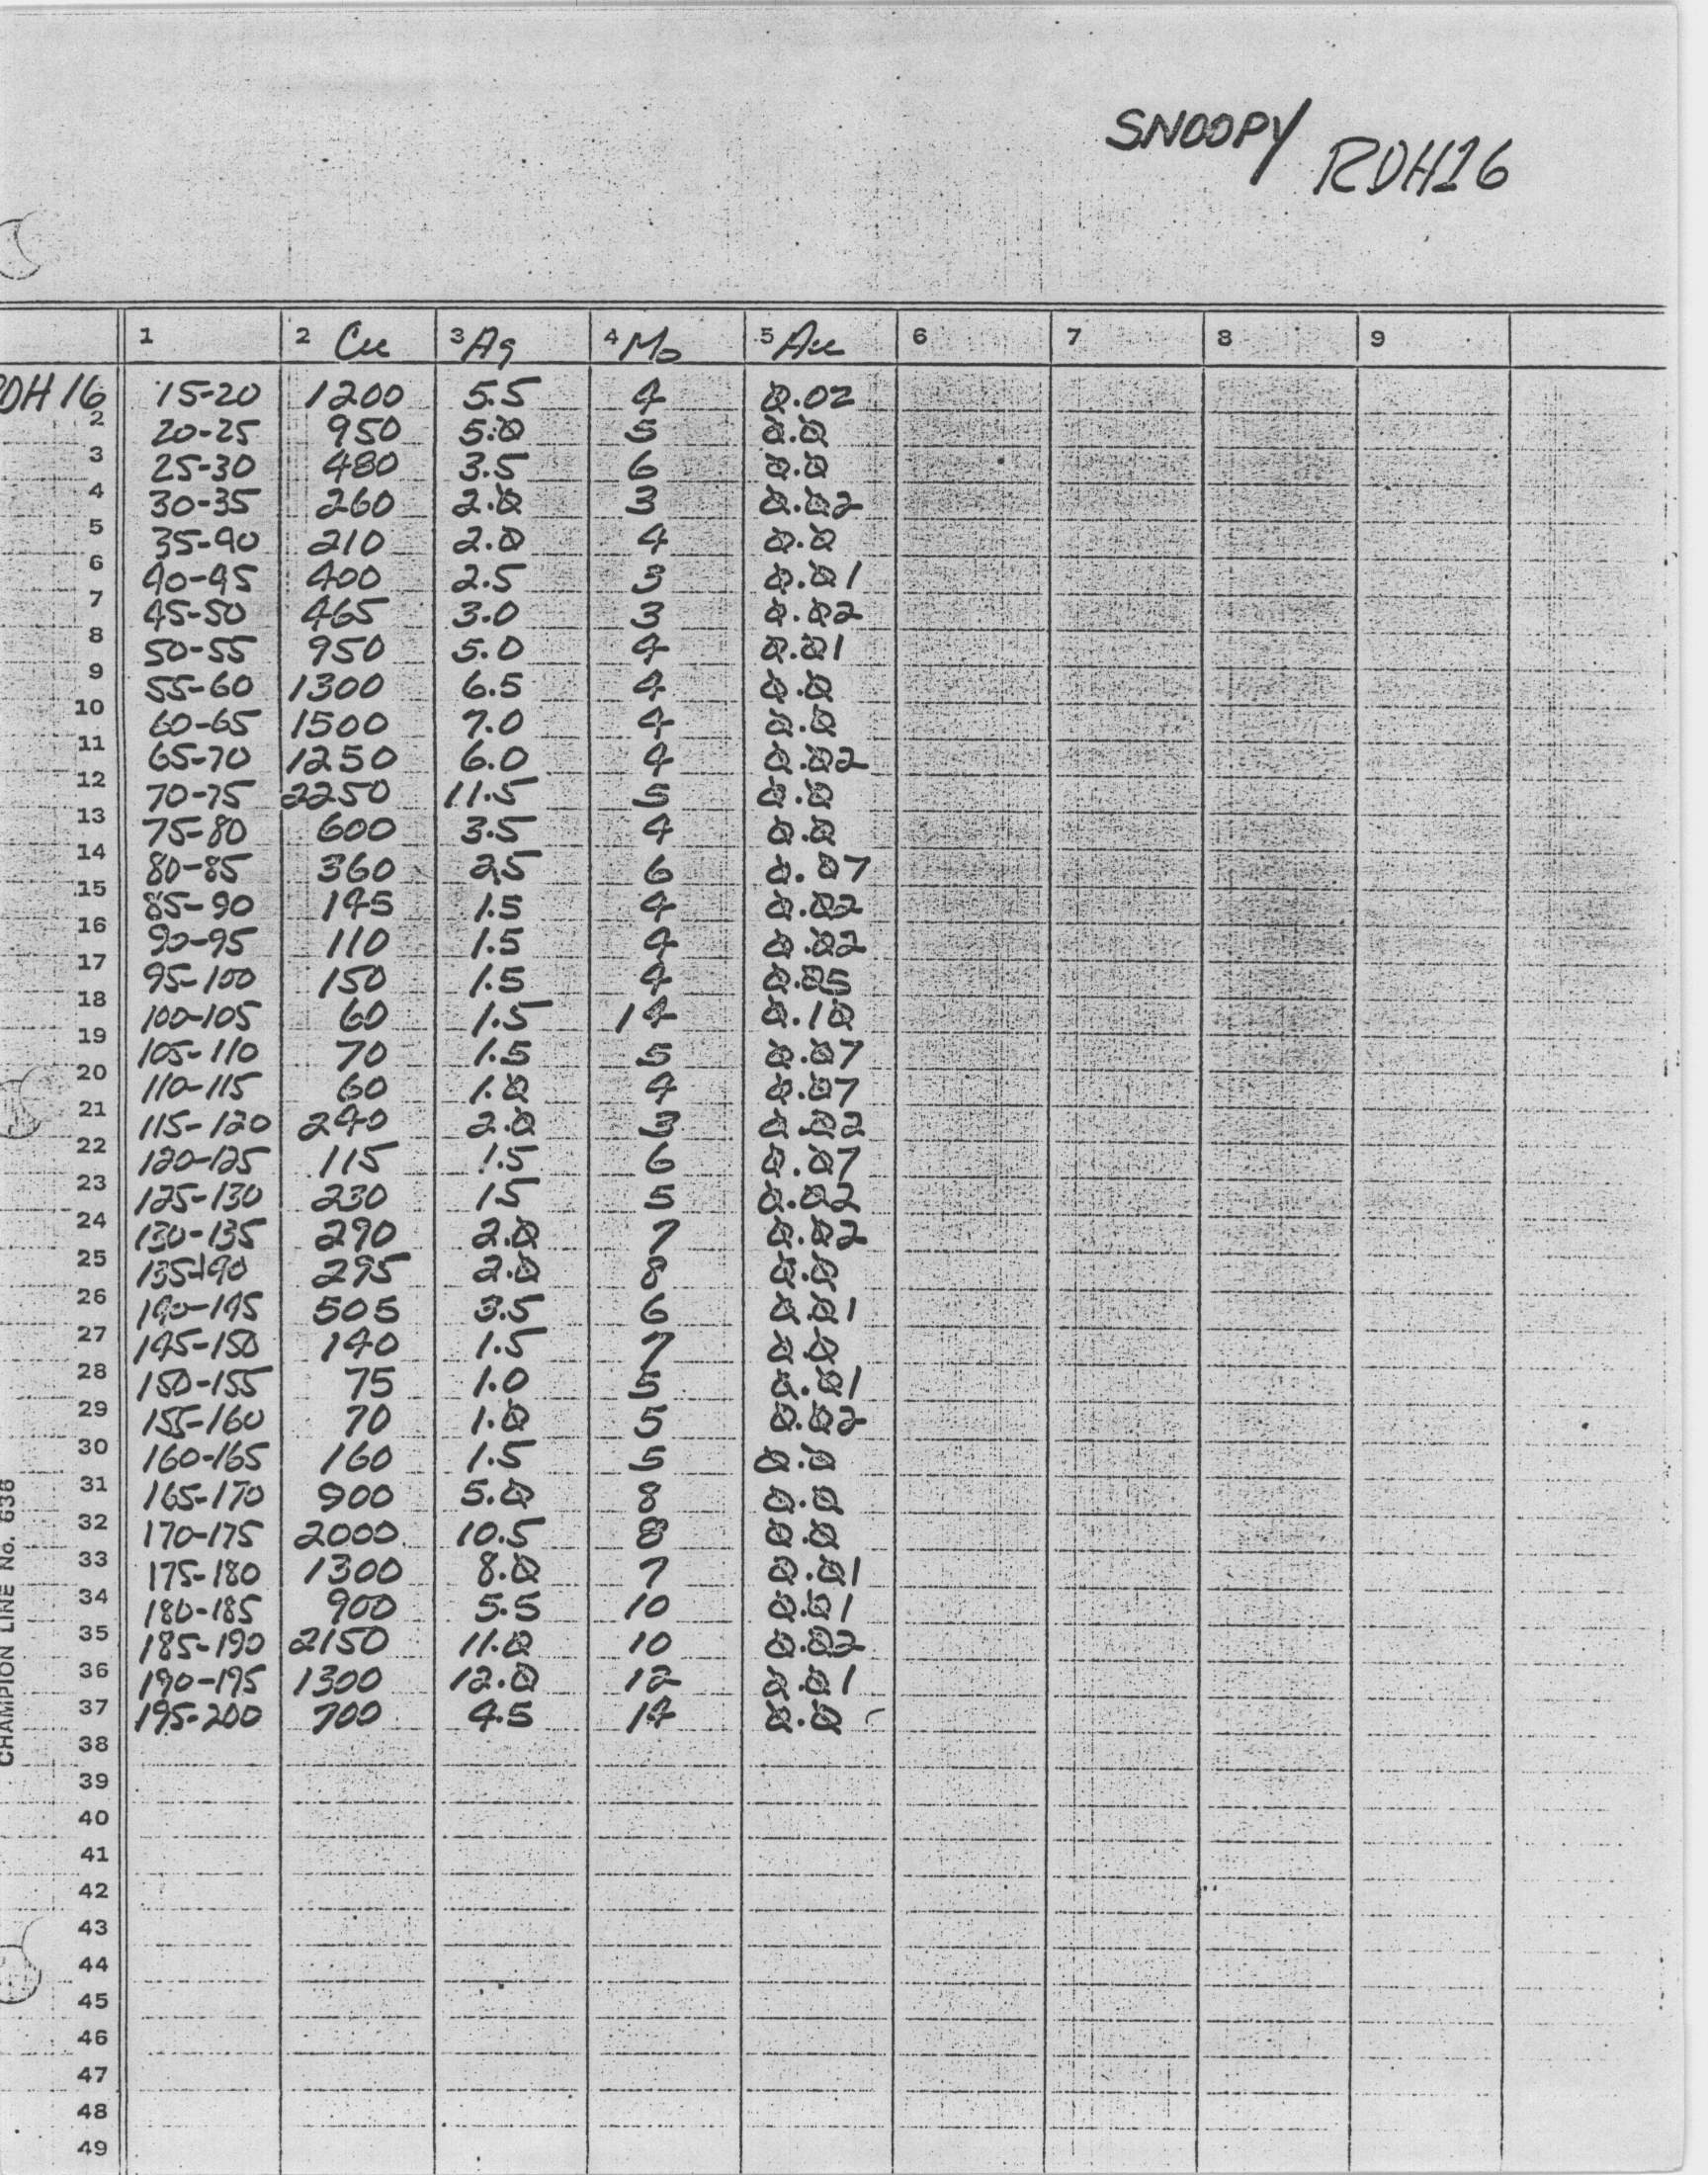 SNOOPY RDH16
1 2 Cu 3 Ag 4 Mo 5 Au 6 7 8 9
RDH 16 15-20 1200 5.5 4 0.02
2 20-25 950 5.0 5 0.0
3 25-30 480 3.5 6 0.0
4 30-35 260 2.0 3 0.02
5 35-40 210 2.0 4 0.0
6 40-45 400 2.5 3 0.01
7 45-50 465 3.0 3 0.02
8 50-55 950 5.0 4 0.01
9 55-60 1300 6.5 4 0.0
10 60-65 1500 7.0 4 0.0
11 65-70 1250 6.0 4 0.02
12 70-75 2250 11.5 5 0.0
13 75-80 600 3.5 4 0.0
14 80-85 360 2.5 6 0.07
15 85-90 145 1.5 4 0.02
16 90-95 110 1.5 4 0.02
17 95-100 150 1.5 4 0.05
18 100-105 60 1.5 14 0.10
19 105-110 70 1.5 5 0.07
20 110-115 60 1.0 4 0.07
21 115-120 240 2.0 3 0.02
22 120-125 115 1.5 6 0.07
23 125-130 230 1.5 5 0.02
24 130-135 290 2.0 7 0.02
25 135-140 295 2.0 8 0.0
26 140-145 505 3.5 6 0.01
27 145-150 140 1.5 7 0.0
28 150-155 75 1.0 5 0.01
29 155-160 70 1.0 5 0.02
30 160-165 160 1.5 5 0.0
31 165-170 900 5.0 8 0.0
32 170-175 2000 10.5 8 0.0
33 175-180 1300 8.0 7 0.01
34 180-185 900 5.5 10 0.01
35 185-190 2150 11.0 10 0.02
36 190-195 1300 12.0 12 0.01
37 195-200 700 4.5 14 0.0
38
39
40
41
42
43
44
45
46
47
48
49
CHAMPION LINE No. 636